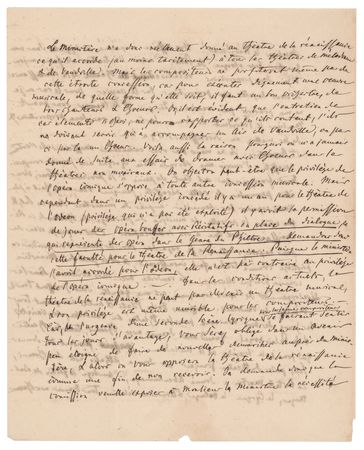 Le Ministère n'a donc réellement donné au théâtre de la renaissance
ce qu'il accorde (au moins tacitement) à tous les théâtres de
& de Vaudeville. Mais les compositeurs ne profiteront même pas de
cette étroite concession, car pour exécuter une œuvre
musicale, de quelle forme qu'elle soit, il faut au moins
& Choeurs. Or il est évident, que l'entretien de
ces éléments si chers, ne pourra s'apporter s'ils
ne doivent servir qu'à accompagner un air de Vaudeville, ou
Voilà aussi la raison pourquoi on n'a jamais
donné de suite aux essais de drames avec Choeurs dans les
théâtres non musicaux. On objectera peut-être que le privilège de
l'opéra comique s'oppose à toute autre concession musicale. Mais
cependant dans un privilège concédé il y a un an pour le théâtre de
l'odéon (privilège qui n'a pas été exploité) il y avait la permission
de jouer des opéra bouffes avec Récitatifs en place du dialogue, ce
qui représente des opéra dans le genre du Philtre. Demandons donc
cette faculté pour le théâtre de la Renaissance. Puisque le ministère
l'avait accordé pour l'odéon, elle n'est pas contraire au privilège
de l'opéra comique. Dans les conditions actuelles le
théâtre de la renaissance ne peut pas devenir un théâtre musical,
& son privilège est même nuisible pour les compositeurs,
car l'urgence d'une seconde scène lyrique se faisant sentir
tous les jours d'avantage, vous serez obligé dans un avenir
peu éloigné de faire de nouvelles démarches auprès du Minis-
tère & alors on vous opposera le théâtre de la renaissance
comme une fin de non recevoir. Je demande donc que la
comission veuille exposer à Monsieur le Ministre la nécessité